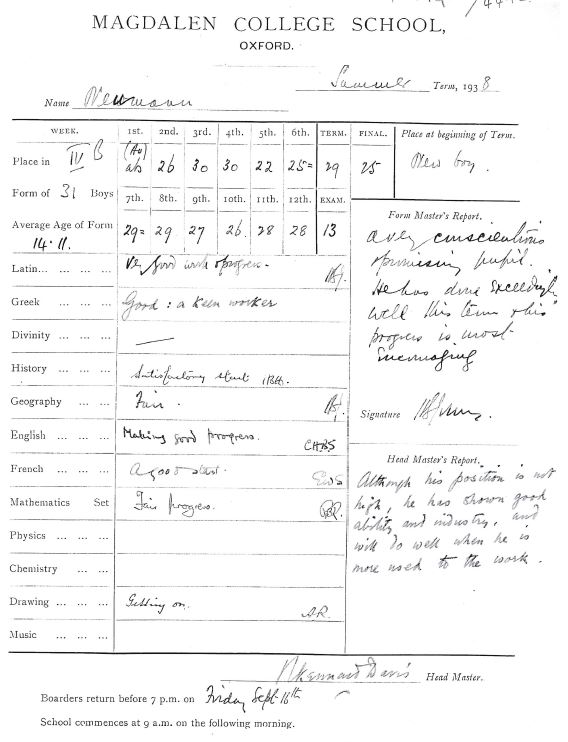 MAGDALEN COLLEGE SCHOOL,
OXFORD.
Summer Term, 1938
Name Neumann
WEEK. 1st. 2nd. 3rd. 4th. 5th. 6th. TERM. FINAL. Place at beginning of Term.
Place in IV B (Au) ab 26 30 30 22 25= 29 25 New boy.
Form of 31 Boys 7th. 8th. 9th. 10th. 11th. 12th. EXAM.
Average Age of Form 14.11. 29= 29 27 26 28 28 13
Latin... ... ... Very good work & progress.
Greek ... ... Good: a keen worker
Divinity ... ... —
History ... ... Satisfactory start
Geography ... ... Fair.
English ... ... Making good progress. CHBS
French ... ... A good start. EWS
Mathematics Set Fair progress.
Physics ... ...
Chemistry ...
Drawing ... ... Getting on. A.R.
Music ... ...
Form Master's Report.
A very conscientious
& promising pupil.
He has done exceedingly
well this term & his
progress is most
encouraging
Signature
Head Master's Report.
Although his position is not
high, he has shown good
ability and industry, and
will do well when he is
more used to the work.
Kennard Davis Head Master.
Boarders return before 7 p.m. on Friday Sept. 16th
School commences at 9 a.m. on the following morning.